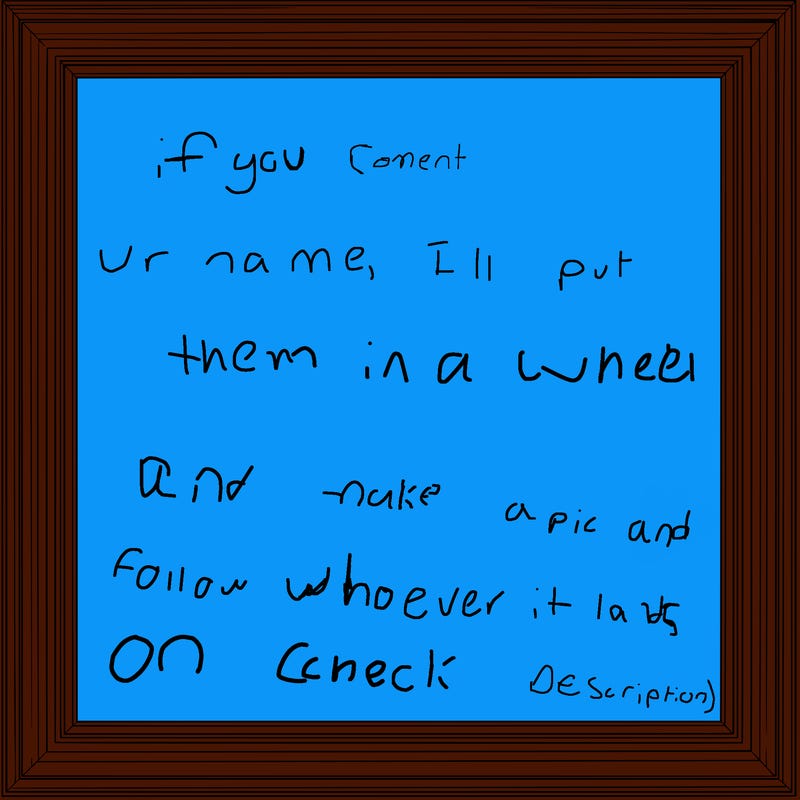 if you Coment
ur name, I'll put
them in a wheel
and make a pic and
follow whoever it lands
on (check Description)